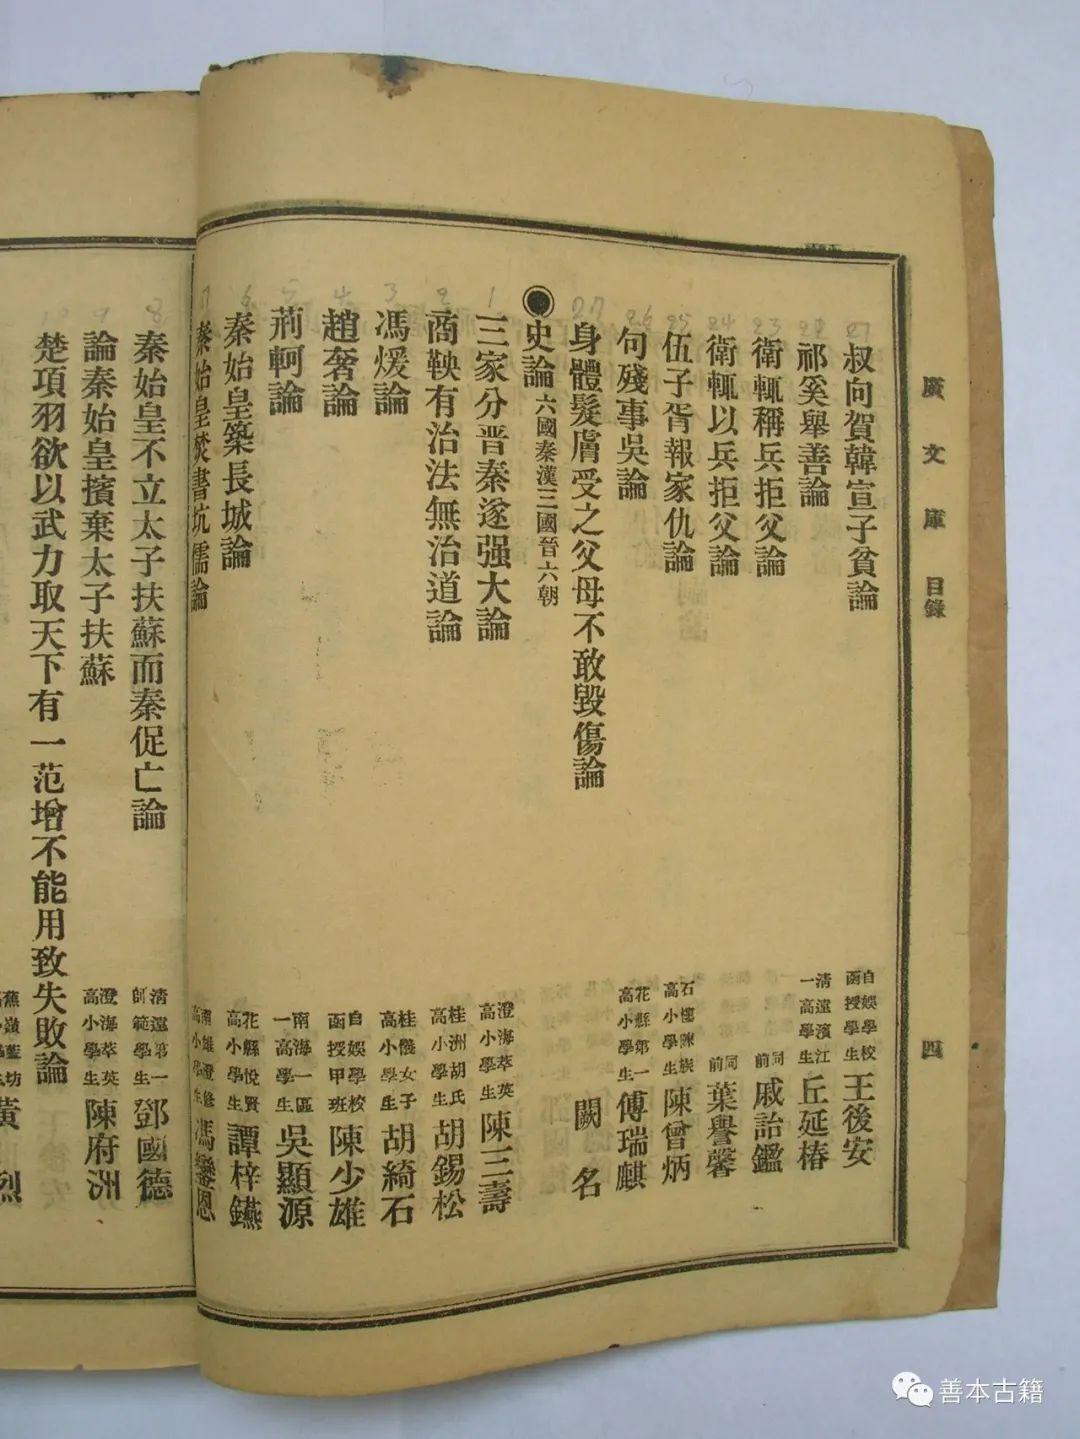 廣文庫 目錄 四
21 叔向賀韓宣子貧論 自娛學校函授學生 王後安
22 祁奚舉善論 清遠濱江一高學生 丘延椿
23 衛輒稱兵拒父論 同前 戚詒鑑
24 衛輒以兵拒父論 同前 葉譽馨
25 伍子胥報家仇論 石樓陳族高小學生 陳曾炳
26 句殘事吳論 花縣第一高小學生 傅瑞麒
27 身體髮膚受之父母不敢毀傷論 闕名
史論 六國秦漢三國晉六朝
1 三家分晉秦遂强大論 澄海萃英高小學生 陳三壽
2 商鞅有治法無治道論 桂洲胡氏高小學生 胡錫松
3 馮煖論 桂儀女子高小學生 胡綺石
4 趙奢論 自娛學校函授甲班 陳少雄
5 荊軻論 南海一區一高學生 吳顯源
6 秦始皇築長城論 花縣悅賢高小學生 譚梓鑣
7 秦始皇焚書坑儒論 南雄澄修高小學生 馮鑾恩
8 秦始皇不立太子扶蘇而秦促亡論 清遠第一師範學生 鄧國德
9 論秦始皇擯棄太子扶蘇 澄海萃英高小學生 陳府洲
10 楚項羽欲以武力取天下有一范增不能用致失敗論 蕉嶺藍坊高小學生 黃烈
善本古籍